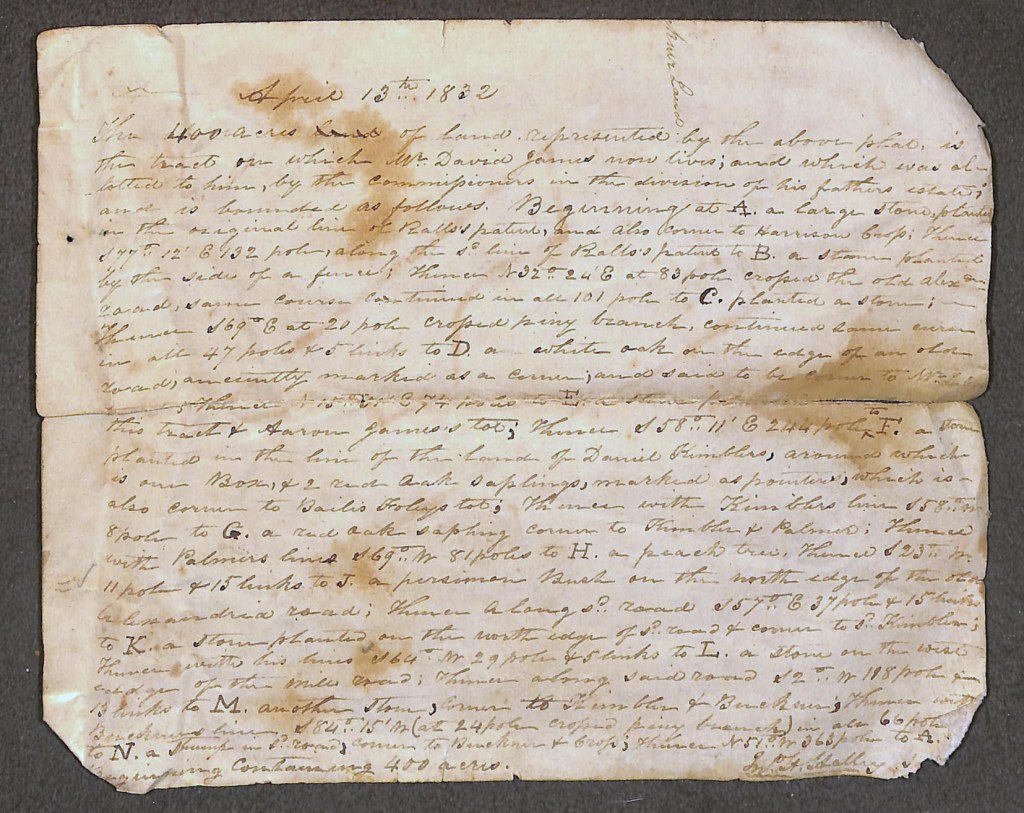 April 13th 1832
The 400 acres land of land represented by the above plat, is
the tract on which Mr. David James now lives; and which was al-
lotted to him, by the commissioners in the division of his fathers estate;
and is bounded as follows. Beginning at A. a large stone, planted
in the original line of Ralls's patent, and also corner to Harrison Crop; Thence
S 47° 12' E 132 pole, along the sd. line of Ralls's patent to B. a stone planted
by the side of a fence; Thence N 32° 24' E at 83 pole croped the old Alexa
road, same course continued in all 101 pole to C. planted a stone;
Thence S 69° E at 20 pole croped piny branch, continued same curse
in all 47 poles & 5 links to D. a white oak on the edge of an old
road, anciently marked as a corner, and said to be corner to
Thence N 15° E 74 poles to E. a stone
this tract & Aaron James's lot; Thence S 58° 11' E 244 pole to F. a stone
planted in the line of the land of Daniel Kimbler, around which
is one Box, & 2 red oak saplings, marked as pointers, which is
also corner to Bailis Foleys lot; Thence with Kimblers line S 58° W
8 pole to G. a red oak sapling corner to Kimbler & Palmer; Thence
with Palmers lines S 69° W 81 poles to H. a peach tree, Thence S 23° W
11 pole & 15 links to J. a persimon Bush on the north edge of the old
Alexandria road; Thence along sd. road S 57° E 37 pole & 15 links
to K. a stone planted on the north edge of sd. road & corner to sd. Kimbler;
Thence with his lines S 64° W 29 pole & 5 links to L. a stone on the west
edge of the mill road; Thence along said road S 2° W 118 pole &
13 links to M. another stone, corner to Kimbler & Buckner; Thence with
Buckners line S 84° 15' W (at 24 pole croped piny branch) in all 66 pole
to N. a Stump in sd. road, corner to Buckner & Crop; thence N 51° W 363 pole to A.
beginning Containing 400 acres.